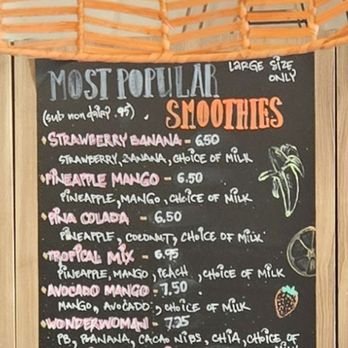 MOST POPULAR
LARGE SIZE ONLY
(sub non dairy .95)
SMOOTHIES
STRAWBERRY BANANA - 6.50
STRAWBERRY, BANANA, CHOICE OF MILK
PINEAPPLE MANGO - 6.50
PINEAPPLE, MANGO, CHOICE OF MILK
PINA COLADA - 6.50
PINEAPPLE, COCONUT, CHOICE OF MILK
TROPICAL MIX - 6.95
PINEAPPLE, MANGO, PEACH, CHOICE OF MILK
AVOCADO MANGO - 7.50
MANGO, AVOCADO, CHOICE OF MILK
WONDERWOMAN - 7.25
PB, BANANA, CACAO NIBS, CHIA, CHOICE OF